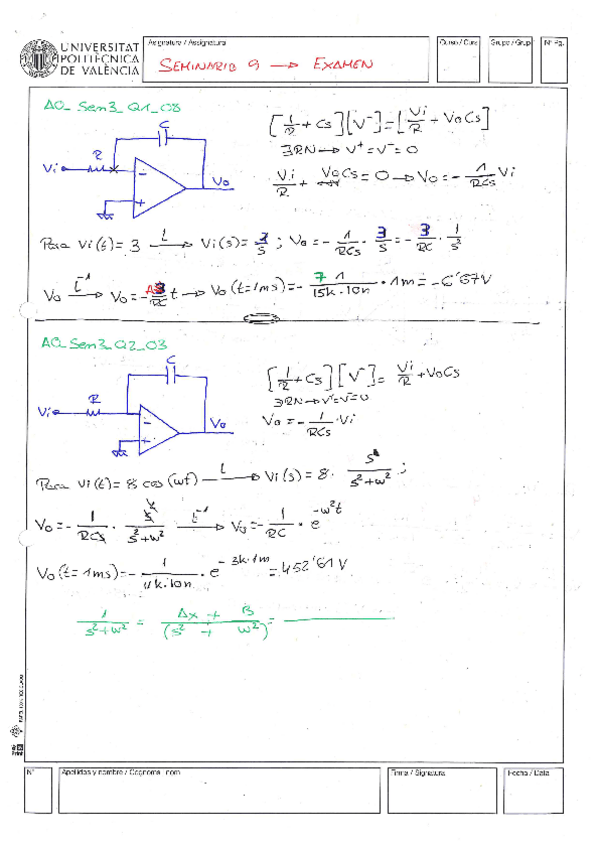 UNIVERSITAT
POLITÈCNICA
DE VALÈNCIA
Asignatura / Assignatura
SEMINARIO 9 → EXAMEN
Curso / Curs
Grupo / Grup
Nº Pg.
AO_Sem3_Q1_08
C
R
Vi
Vo
-
+
[1/R + Cs][V⁻] = [Vi/R + VoCs]
∃RN → V⁺ = V⁻ = 0
Vi/R + VoCs = 0 → Vo = - 1/RCs Vi
Para Vi(t) = 3 —L→ Vi(s) = 3/s ; Vo = - 1/RCs · 3/s = - 3/RC · 1/s²
Vo —L⁻¹→ Vo = - 3/RC t → Vo(t=1ms) = - 7 1/15k·10n · 1m = -6'67V
AO_Sem3_Q2_03
C
R
Vi
Vo
-
+
[1/R + Cs][V⁻] = Vi/R + VoCs
∃RN → V⁺ = V⁻ = 0
Vo = - 1/RCs · Vi
Para Vi(t) = 8 cos(wt) —L→ Vi(s) = 8 · s/s²+w² ;
Vo = - 1/RCs · s/s²+w² —L⁻¹→ Vo = - 1/RC · e^-w²t
Vo(t=1ms) = - 1/11k·10n · e^-3k·1m = 452'61V
1/s²+w² = Ax + B/(s² + w²) =
Nº
Apellidos y nombre / Cognoms i nom
Firma / Signatura
Fecha / Data